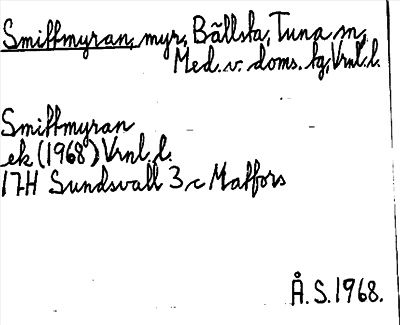 Smiffmyran, myr, Bällsta, Tuna sn,
Med. v. doms. tg, Vrnl. l.
Smiffmyran
ek (1968) Vrnl. l.
17H Sundsvall 3 c Matfors
Å. S. 1968.